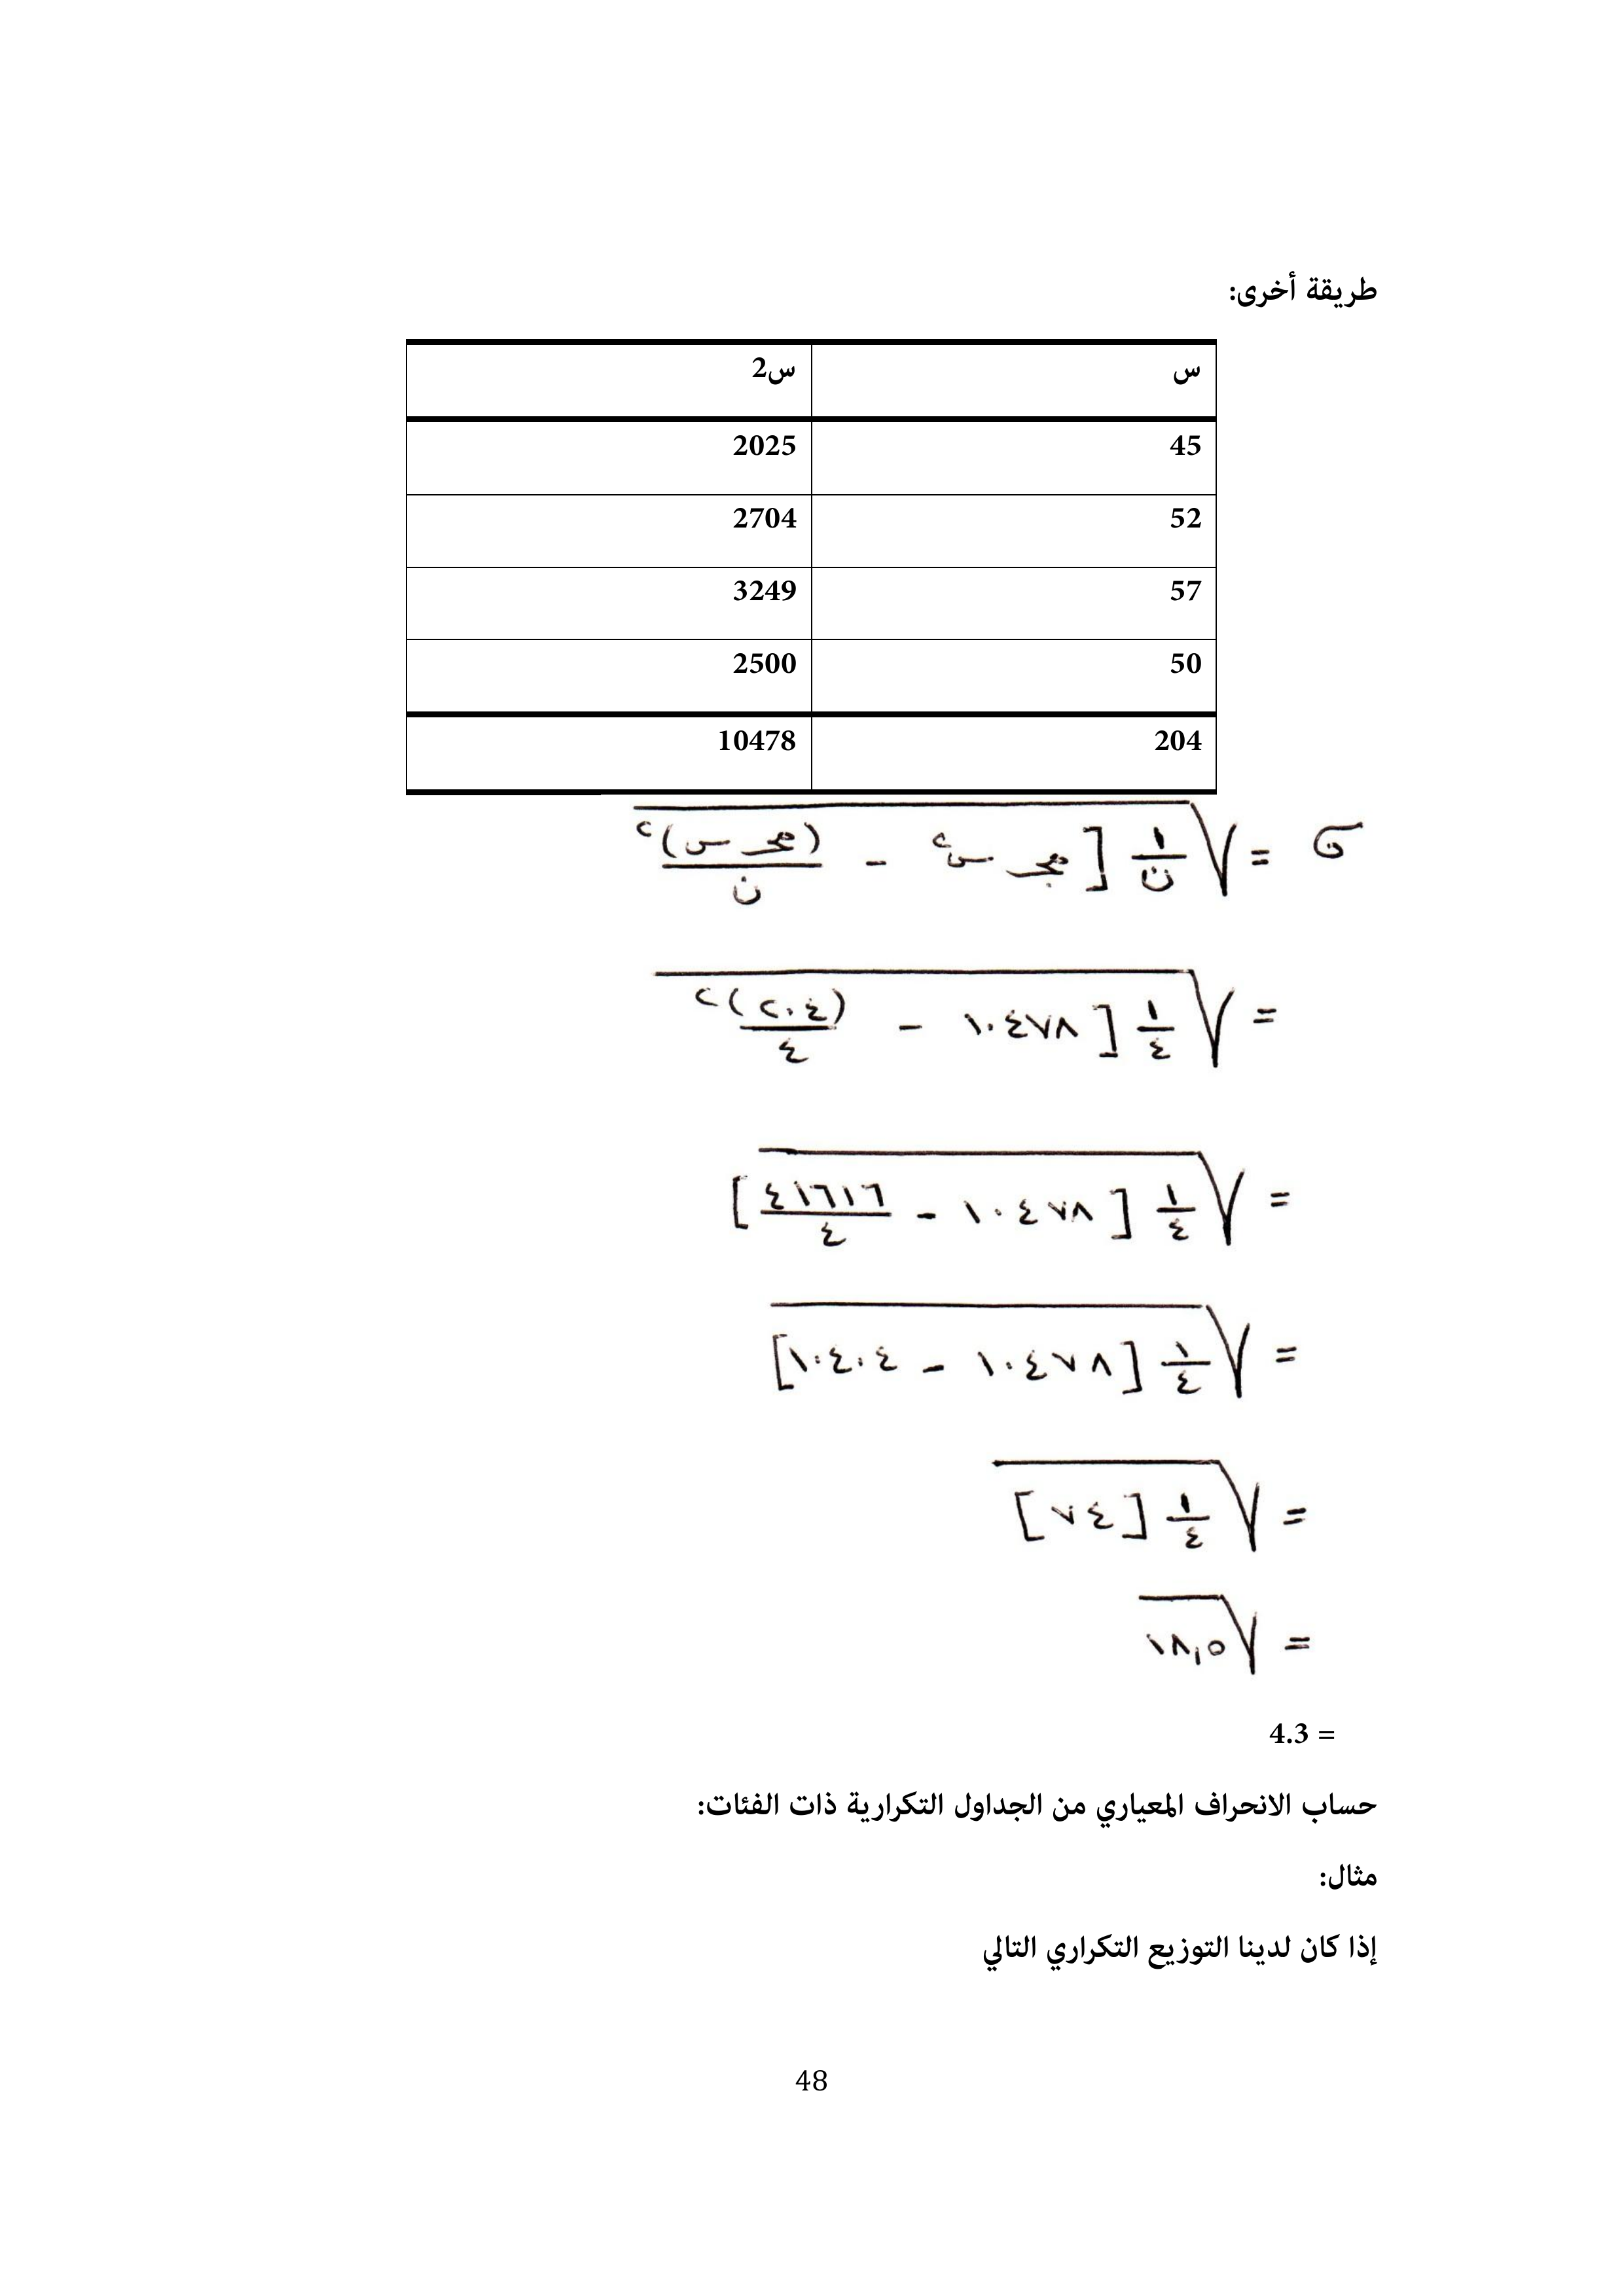 طريقة أخرى:
س س2
45 2025
52 2704
57 3249
50 2500
204 10478
σ = √ ١/ن [مجـ س٢ - (مجـ س)٢/ن
= √ ١/٤ [١٠٤٧٨ - (٢٠٤)٢/٤
= √ ١/٤ [١٠٤٧٨ - ٤١٦١٦/٤]
= √ ١/٤ [١٠٤٧٨ - ١٠٤٠٤]
= √ ١/٤ [٧٤]
= √ ١٨,٥
= 4.3
حساب الانحراف المعياري من الجداول التكرارية ذات الفئات:
مثال:
إذا كان لدينا التوزيع التكراري التالي
48